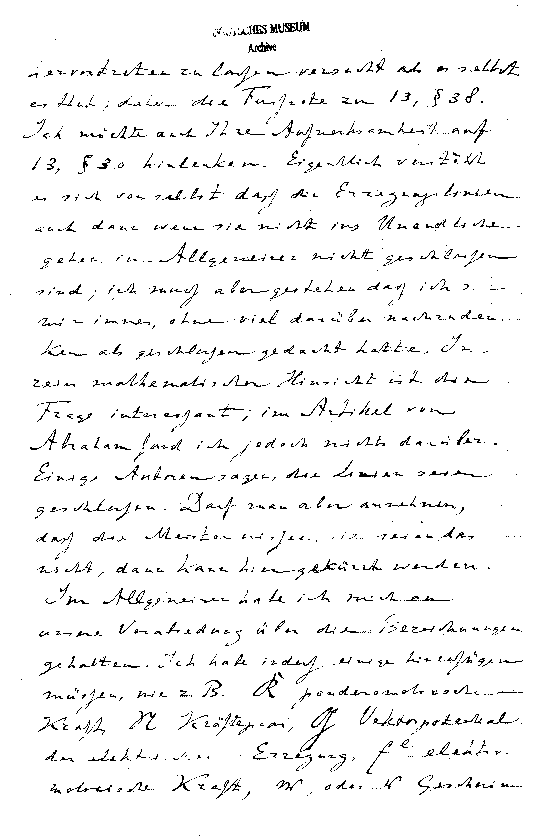 DEUTSCHES MUSEUM
Archiv
hervortreten zu lassen versucht als er selbst
es thut; daher die Fussnote zu 13, § 38.
Ich möchte auch Ihre Aufmerksamkeit auf
13, § 30 hinlenken. Eigentlich versteht
es sich von selbst dass die Erregungslinien
auch dann wenn sie nicht ins Unendliche
gehen im Allgemeinen nicht geschlossen
sind; ich muss aber gestehen dass ich s
mir immer, ohne viel darüber nachzuden
ken als geschlossen gedacht hatte. In
rein mathematischer Hinsicht ist die
Frage interessant; im Artikel von
Abraham fand ich jedoch nichts darüber.
Einige Autoren sagen, die Linien seien
geschlossen. Darf man aber annehmen,
dass die Meisten wissen, sie seien das
nicht, dann kann hier gekürzt werden.
Im Allgemeinen habe ich mich an
unsere Verabredung über die Bezeichnungen
gehalten. Ich habe indess einige hinzufügen
müssen, wie z. B. ponderomotorische
Kraft, Kräftepaar, Vektorpotential
der Erregung, elektro
motorische Kraft, oder Geschwin